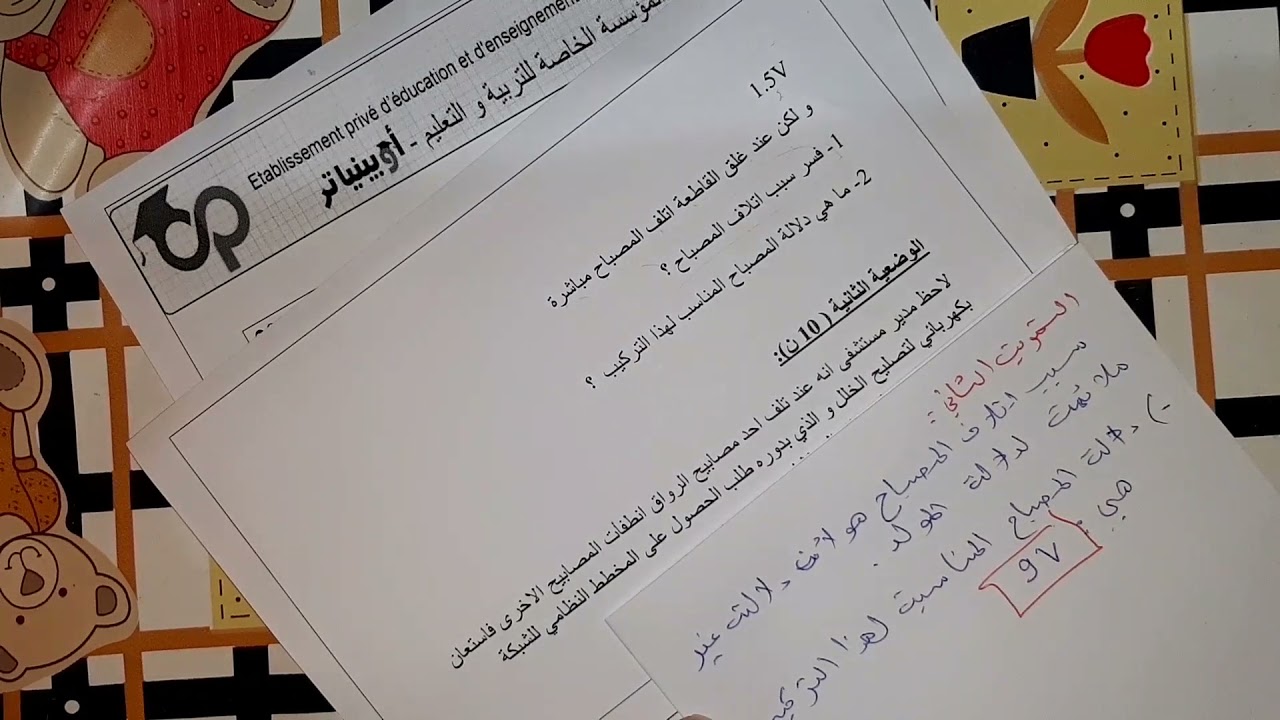 Etablissement privé d'éducation et d'enseignement
المؤسسة الخاصة للتربية و التعليم - أوبينياتر
1.5V
و لكن عند غلق القاطعة اتلف المصباح مباشرة
1- فسر سبب اتلاف المصباح ؟
2- ما هي دلالة المصباح المناسب لهذا التركيب ؟
الوضعية الثانية ( 10 ن):
لاحظ مدير مستشفى انه عند تلف احد مصابيح الرواق انطفأت المصابيح الاخرى فاستعان
بكهربائي لتصليح الخلل و الذي بدوره طلب الحصول على المخطط النظامي للشبكة
الثاني:
سبب اتلاف المصباح هو لأن دلالته غير
ملائمة لدلالة المولد.
دلالة المصباح المناسبة لهذا
هي
9V